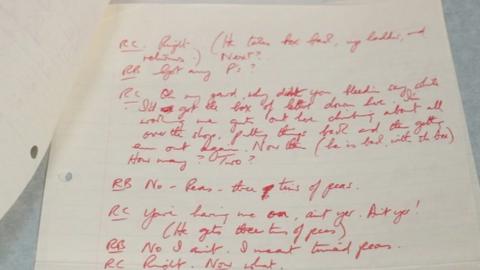 RC. Right. (He takes box back, up ladder, and
returns.) Next?
RB Got any P's?
RC my gawd, why didn't you bleedin say
I'd got the box of letters down here.
working me guts out here climbing about all
over the shop, putting things back and then getting
em out again. Now then (he is back with the box)
How many? Two?
RB No - Peas - three tins of peas.
RC You're having me on, ain't yer. Ain't yer!
(He gets three tins of peas)
RB No I ain't. I meant tinned peas.
RC Right. Now what.